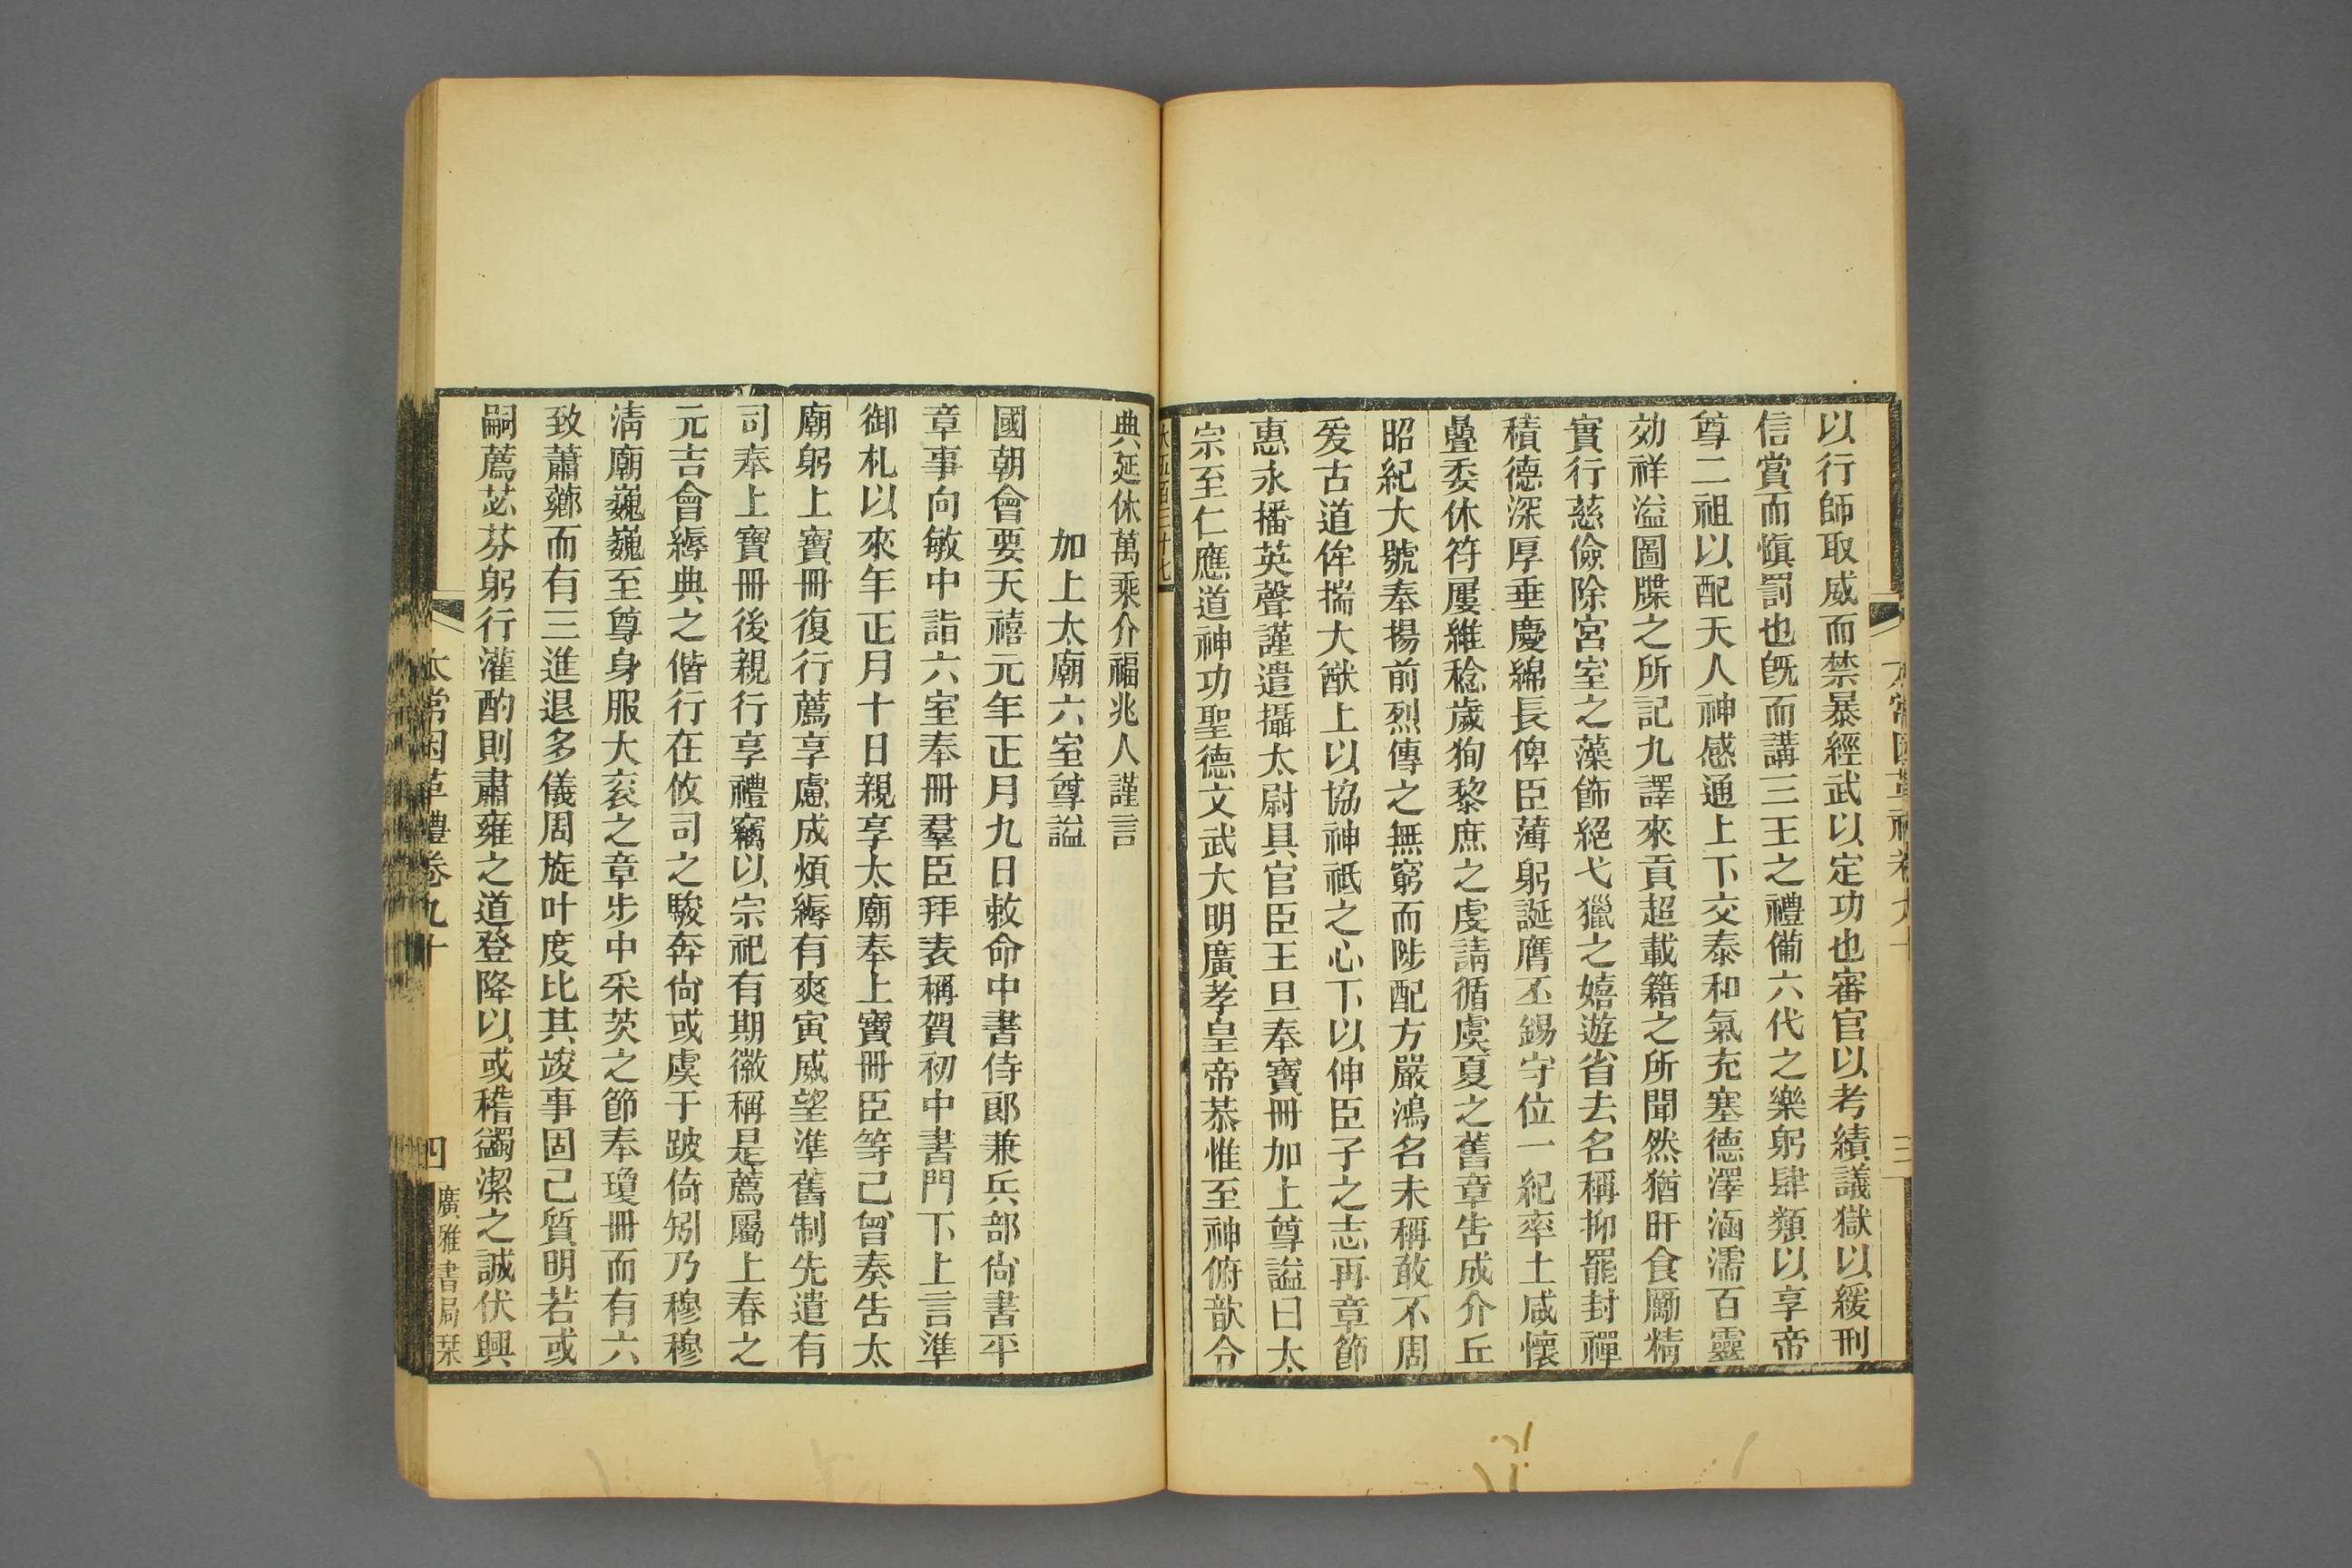 以行師取威而禁暴經武以定功也審官以考績議獄以緩刑
信賞而愼罰也旣而講三王之禮備六代之樂躬肆類以享帝
尊二祖以配天人神感通上下交泰和氣充塞德澤涵濡百靈
効祥溢圖牒之所記九譯來貢超載籍之所聞然猶旰食勵精
實行慈儉除宮室之藻飾絕弋獵之嬉遊省去名稱抑罷封禪
積德深厚垂慶綿長俾臣薄躬誕膺丕錫守位一紀率土咸懷
疊委休符屢維稔歲狥黎庶之虔請循虞夏之舊章告成介丘
昭紀大號奉揚前烈傳之無窮而陟配方嚴鴻名未稱敢不周
爰古道侔揣大猷上以協神祇之心下以伸臣子之志再章節
惠永播英聲謹遣攝太尉具官臣王旦奉寶冊加上尊謚曰太
宗至仁應道神功聖德文武大明廣孝皇帝恭惟至神俯歆令
典延休萬乘介福兆人謹言
加上太廟六室尊謚
國朝會要天禧元年正月九日敕命中書侍郎兼兵部尙書平
章事向敏中詣六室奉冊羣臣拜表稱賀初中書門下上言準
御札以來年正月十日親享太廟奉上寶冊臣等已曾奏告太
廟躬上寶冊復行薦享慮成煩縟有爽寅威望準舊制先遣有
司奉上寶冊後親行享禮竊以宗祀有期徽稱是薦屬上春之
元吉會縟典之偕行在攸司之駿奔尙或虞于跛倚矧乃穆穆
淸廟巍巍至尊身服大衮之章步中采茨之節奉瓊冊而有六
致蕭薌而有三進退多儀周旋叶度比其竣事固已質明若或
嗣薦苾芬躬行灌酌則肅雍之道登降以或稽蠲潔之誠伏興
太常因革禮卷九十
四
廣雅書局栞